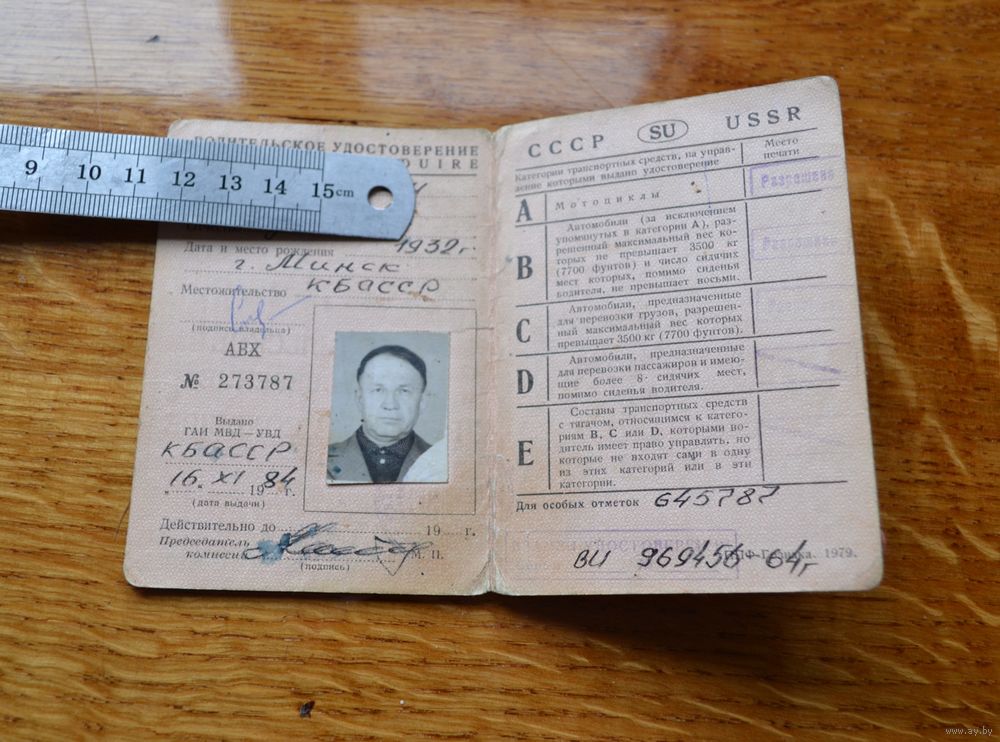 9 10 11 12 13 14 15cm
ВОДИТЕЛЬСКОЕ УДОСТОВЕРЕНИЕ
DUIRE
1932г.
Дата и место рождения
г. Минск
Местожительство КБАССР
(подпись владельца)
АБХ
№ 273787
Выдано
ГАИ МВД—УВД
КБАССР
„16„ XI 1984 г.
(дата выдачи)
Действительно до 19 г.
Председатель
комиссии М. П.
(подпись)
СССР SU USSR
Категории транспортных средств, на управ-
ление которыми выдано удостоверение
Место
печати
A Мотоциклы
Разрешено
B Автомобили (за исключением
упомянутых в категории А), раз-
решенный максимальный вес ко-
торых не превышает 3500 кг
(7700 фунтов) и число сидячих
мест которых, помимо сиденья
водителя, не превышает восьми.
Разрешено
C Автомобили, предназначенные
для перевозки грузов, разрешен-
ный максимальный вес которых
превышает 3500 кг (7700 фунтов).
D Автомобили, предназначенные
для перевозки пассажиров и имею-
щие более 8- сидячих мест,
помимо сиденья водителя.
E Составы транспортных средств
с тягачом, относящимся к катего-
риям В, С или D, которыми во-
дитель имеет право управлять, но
которые не входят сами в одну
из этих категорий или в эти
категории.
Для особых отметок 645787
УДОСТОВЕРЕНИЕ
ВИ 969456 64г
1979.
www.ay.by